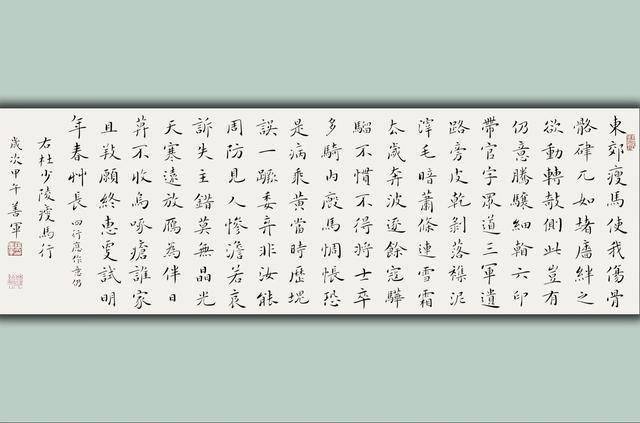 東郊瘦馬使我傷骨
骼硉兀如堵牆絆之
欲動轉欹側此豈有
仍意騰驤細看六印
帶官字眾道三軍遺
路旁皮乾剝落襍泥
滓毛暗蕭條連雪霜
去歲奔波逐餘寇驊
騮不慣不得將士卒
多騎內廄馬惆悵恐
是病乘黃當時歷塊
誤一蹶委棄非汝能
周防見人慘澹若哀
訴失主錯莫無晶光
天寒遠放鴈為伴日
莫不收烏啄瘡誰家
且養願終惠更試明
年春艸長 四行應作意仍
右杜少陵瘦馬行
歲次甲午善軍